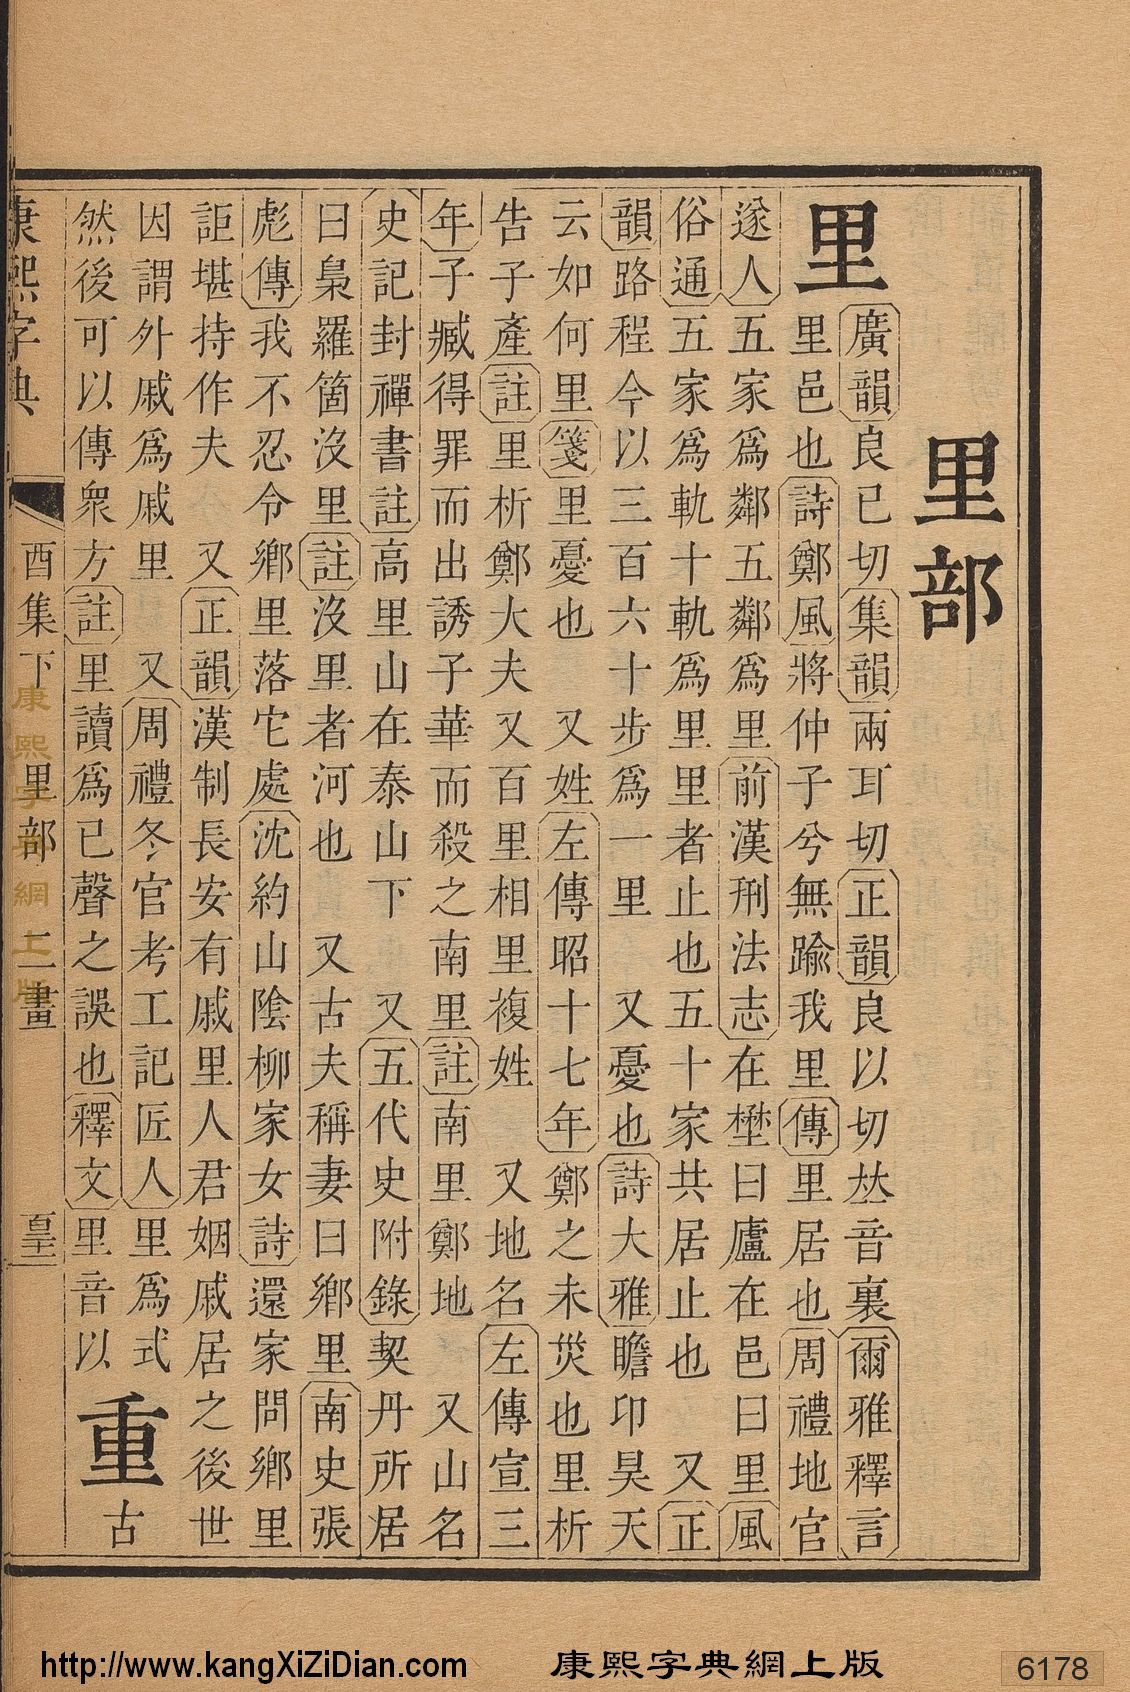 里部
里
廣韻良已切集韻兩耳切正韻良以切𠀤音裏爾雅釋言
里邑也詩鄭風將仲子兮無踰我里傳里居也周禮地官
遂人五家爲鄰五鄰爲里前漢刑法志在壄曰廬在邑曰里風
俗通五家爲軌十軌爲里里者止也五十家共居止也又正
韻路程今以三百六十步爲一里又憂也詩大雅瞻卬昊天
云如何里箋里憂也又姓左傳昭十七年鄭之未災也里析
告子產註里析鄭大夫又百里相里複姓又地名左傳宣三
年子臧得罪而出誘子華而殺之南里註南里鄭地又山名
史記封禪書註高里山在泰山下又五代史附錄契丹所居
曰梟羅箇沒里註沒里者河也又古夫稱妻曰鄉里南史張
彪傳我不忍令鄉里落它處沈約山陰柳家女詩還家問鄉里
詎堪持作夫又正韻漢制長安有戚里人君姻戚居之後世
因謂外戚爲戚里又周禮冬官考工記匠人里爲式
然後可以傳衆方註里讀爲已聲之誤也釋文里音以
重
古
康熙字典
酉集下
里部
二畫
康熙字典網上版
http://www.kangXiZiDian.com
康熙字典網上版
6178